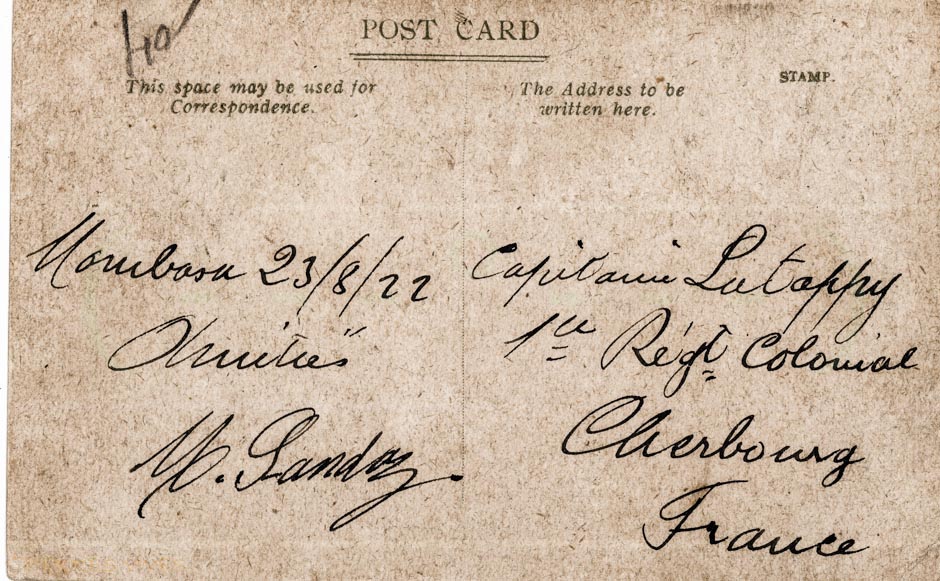 40
POST CARD
This space may be used for
Correspondence.
The Address to be
written here.
STAMP.
Mombasa 23/8/22
Amitiés
M. Sandoz.
Capitaine Lutappy
1er Régt Colonial
Cherbourg
France